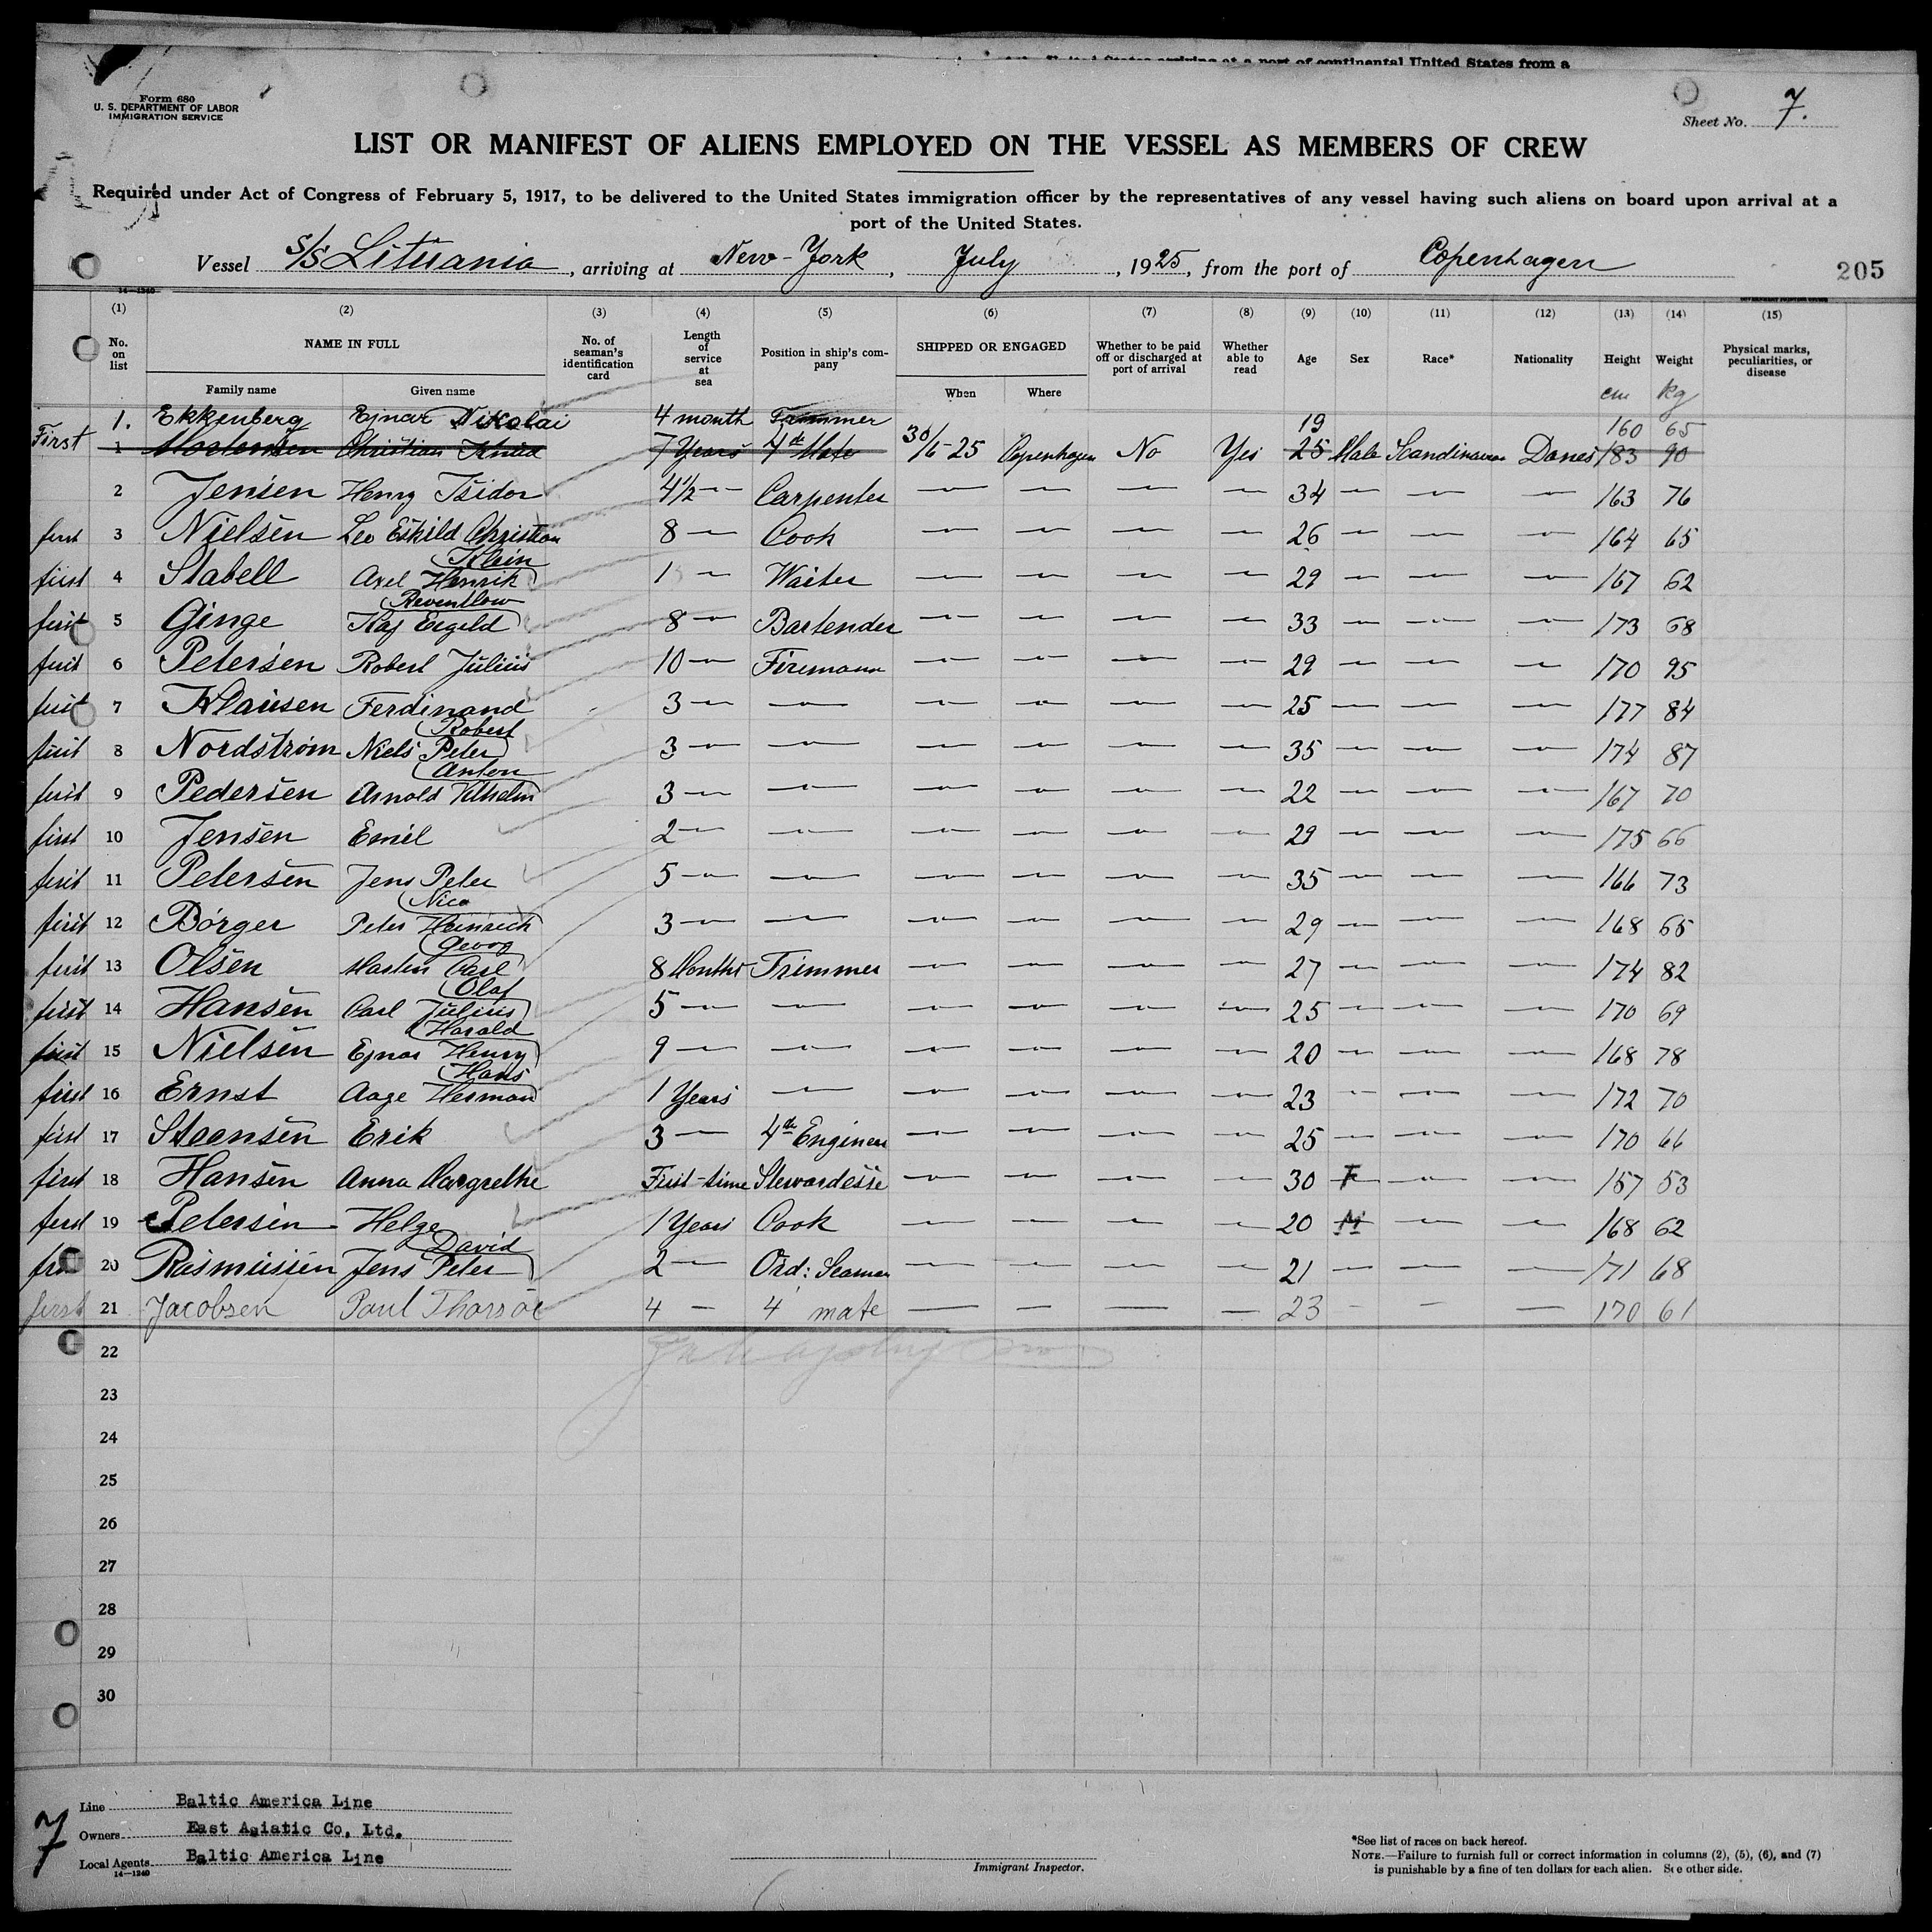 United States arriving at a port of continental United States from a
Form 680
U. S. DEPARTMENT OF LABOR
IMMIGRATION SERVICE
Sheet No. 7.
LIST OR MANIFEST OF ALIENS EMPLOYED ON THE VESSEL AS MEMBERS OF CREW
Required under Act of Congress of February 5, 1917, to be delivered to the United States immigration officer by the representatives of any vessel having such aliens on board upon arrival at a
port of the United States.
Vessel S/S Lituania, arriving at New-York, July, 1925, from the port of Copenhagen
205
14—1240
(1) (2) (3) (4) (5) (6) (7) (8) (9) (10) (11) (12) (13) (14) (15)
No. on list NAME IN FULL Family name Given name No. of seaman's identification card Length of service at sea Position in ship's company SHIPPED OR ENGAGED When Where Whether to be paid off or discharged at port of arrival Whether able to read Age Sex Race* Nationality Height Weight Physical marks, peculiarities, or disease
cm kg
1. Ekkenberg Ejnar Nikolai 4 month Trimmer 19 160 65
First 1 Mortensen Christian Knud 7 Years 4th Mate 30/6-25 Copenhagen No Yes 25 Male Scandinavian Danes 183 90
2 Jensen Henry Isidor 4½ — Carpenter — — — — 34 — — — 163 76
first 3 Nielsen Leo Eskild Christian 8 — Cook — — — — 26 — — — 164 65
first 4 Stabell Axel Henrik Klein 1 — Waiter — — — — 29 — — — 167 62
first 5 Ginge Kaj Ergild Reventlow 8 — Bartender — — — — 33 — — — 173 68
first 6 Petersen Robert Julius 10 — Firemann — — — — 29 — — — 170 95
first 7 Klausen Ferdinand 3 — — — — — — 25 — — — 177 84
first 8 Nordstrøm Niels Peter Robert 3 — — — — — — 35 — — — 174 87
first 9 Pedersen Arnold Vilhelm Anton 3 — — — — — — 22 — — — 167 70
first 10 Jensen Emil 2 — — — — — — 29 — — — 175 66
first 11 Petersen Jens Peter 5 — — — — — — 35 — — — 166 73
first 12 Börger Peter Heinrich Nico 3 — — — — — — 29 — — — 168 65
first 13 Olsen Marten Carl Georg 8 Months Trimmer — — — — 27 — — — 174 82
first 14 Hansen Carl Julius Olaf 5 — — — — — — 25 — — — 170 69
first 15 Nielsen Ejnar Henry Harald 9 — — — — — — 20 — — — 168 78
first 16 Ernst Aage Herman Hans 1 Years — — — — — 23 — — — 172 70
first 17 Steensen Erik 3 — 4th Engineer — — — — 25 — — — 170 66
first 18 Hansen Anna Margrethe First-time Stewardesse — — — — 30 F — — 157 53
first 19 Petersen Helge 1 Years Cook — — — — 20 M — — 168 62
20 Rasmussen Jens Peter David 2 — Ord: Seaman — — — — 21 — — — 171 68
first 21 Jacobsen Poul Thorsøe 4 — 4 mate — — — — 23 — — — 170 61
22
23
24
25
26
27
28
29
30
7
Line Baltic America Line
Owners East Asiatic Co, Ltd.
Local Agents Baltic America Line
14—1240
Immigrant Inspector.
*See list of races on back hereof.
NOTE.—Failure to furnish full or correct information in columns (2), (5), (6), and (7)
is punishable by a fine of ten dollars for each alien. See other side.